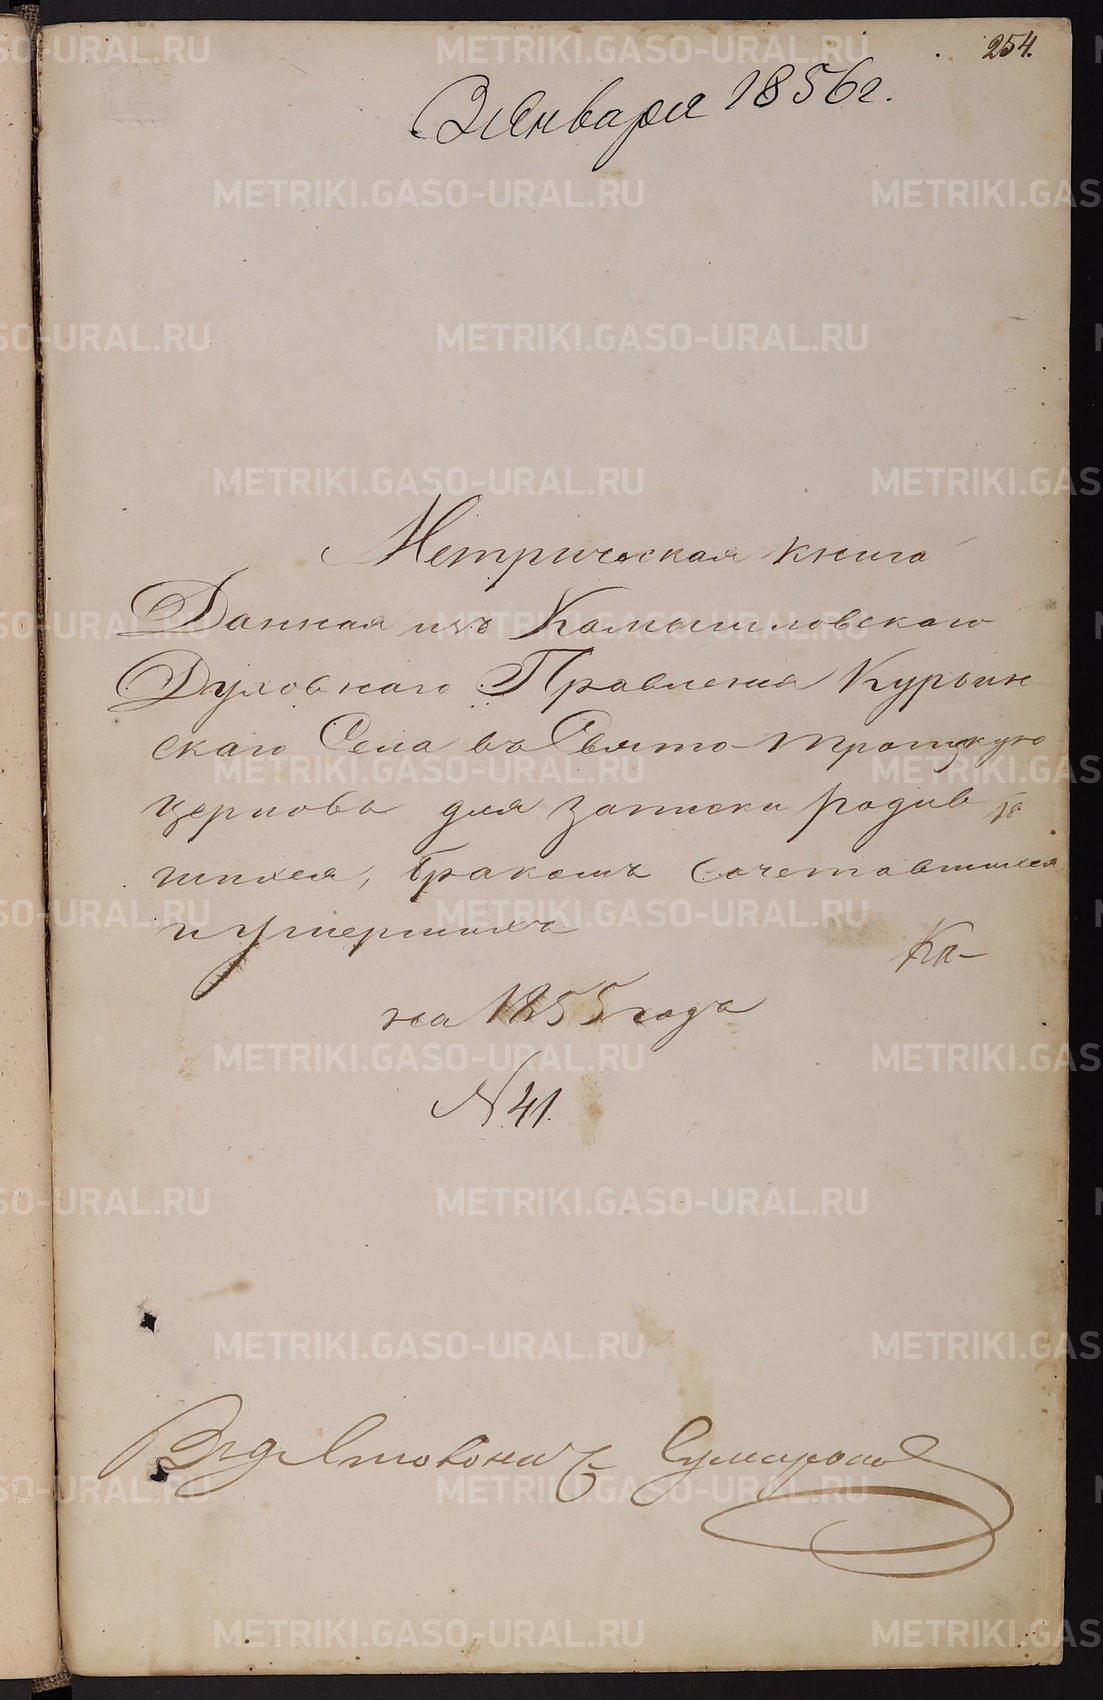 254.
3 Января 1856 г.
Метрическая книга
Данная изъ Камышловскаго
Духовнаго Правления Курьин
скаго Села въ Свято-Троицкую
церковь для записки родив
шихся, бракомъ сочетавшихся
и умершихъ
на 1855 годъ
N 41.
METRIKI.GASO-URAL.RU